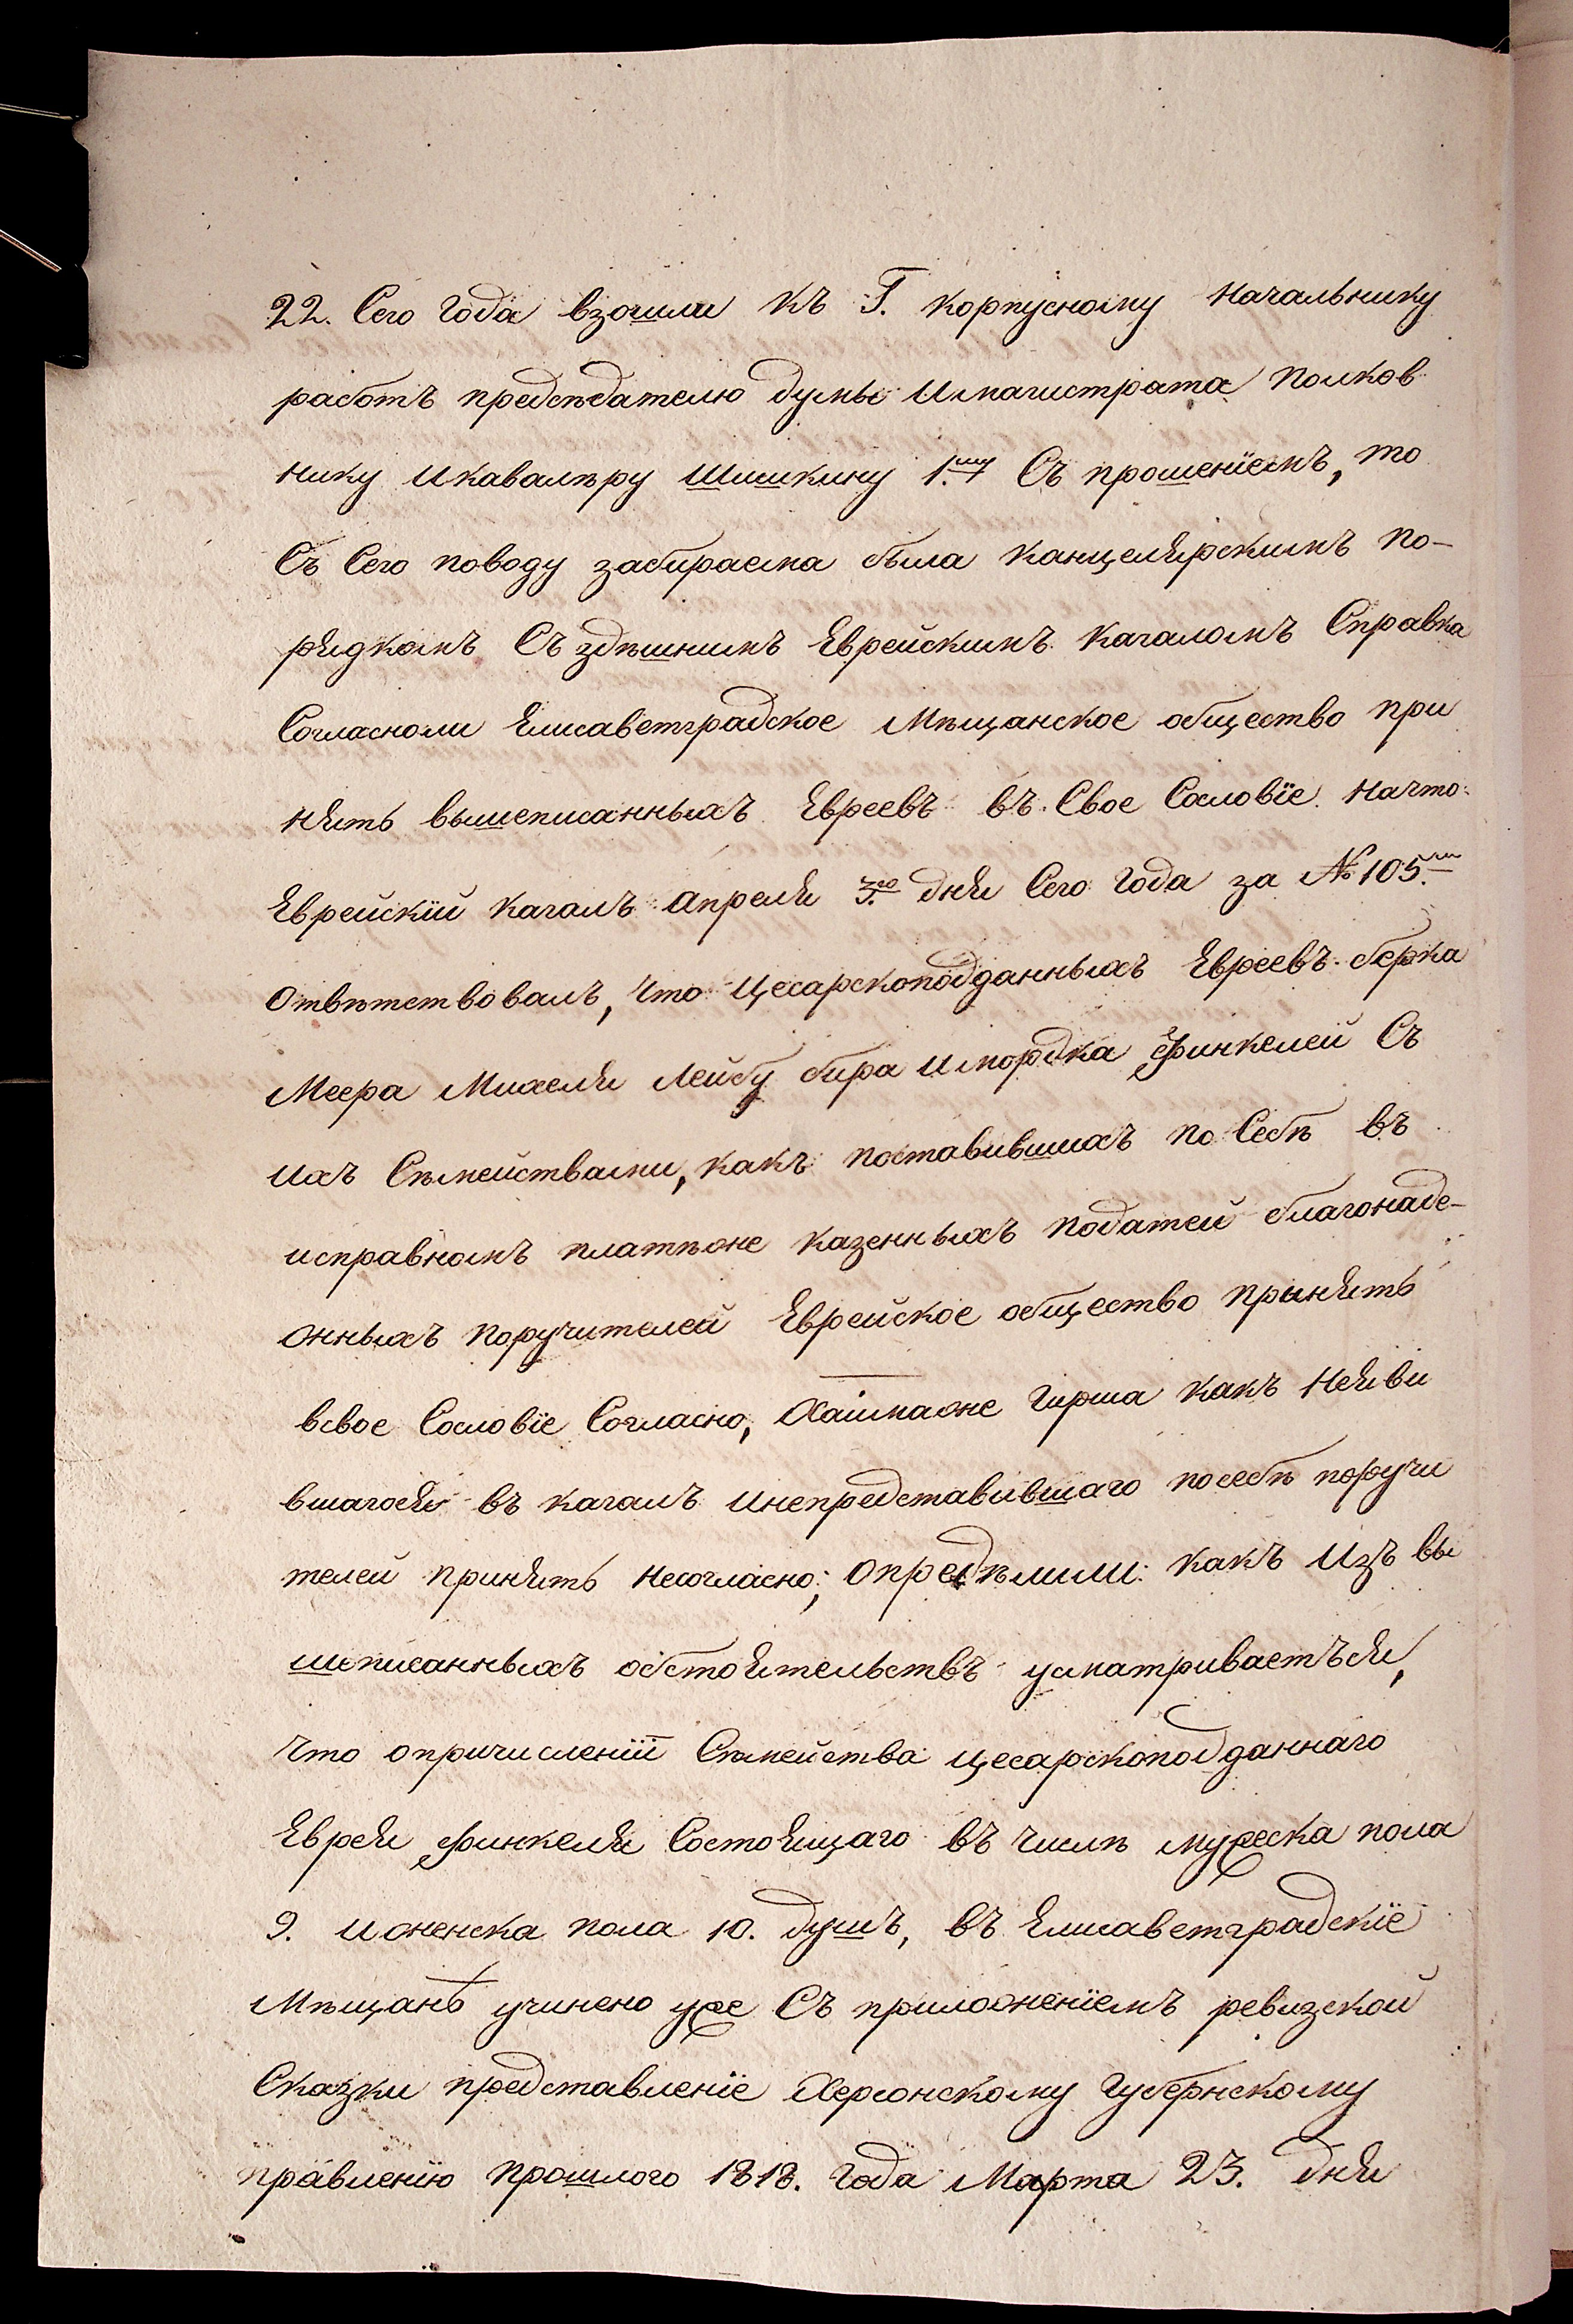 22. Сего года взошли къ Г. корпусному Начальнику
работъ предсѣдателю думы Имагистрата Полков
нику Икавалѣру Шишкину 1.му Съ прошенїемъ, то
Съ Сего поводу забираема была Канцелярскимъ По-
рядкомъ Съ здѣшнимъ Еврейскимъ Кагаломъ Справка
Согласноли Елисаветградское Мѣщанское общество при
нять вышеписанныхъ Евреевъ въ Свое Сословїе. Начто
Еврейскїй Кагалъ Апреля 3.го дня Сего Года за № 105.м
Отвѣтствовалъ, что Цесарскоподданныхъ Евреевъ берка
Меера Михеля Лейбу бира Имордка Финкелей Съ
Ихъ Сѣмействами, какъ поставившихъ по Себѣ въ
исправномъ платѣже казенныхъ Податей благонаде-
жныхъ Поручителей Еврейское общество принять
всвое Сословїе Согласно, Хаимаже Гирша какъ Неяви
вшагося въ кагалъ Инепредставившаго посебѣ поручи
телей принять несогласно; Опредѣлили: какъ Изъ вы
шеписанныхъ обстоятельствъ усматриваетъся,
что опричисленїи Сѣмейства цесарскоподданнаго
Еврея Финкеля Состоящаго въ числѣ мужеска пола
9. Иженска пола 10. душъ, въ Елисаветградскїе
Мѣщанѣ учинено уже Съ приложенїемъ ревизской
Сказки представленїе Херсонскому Губернскому
правленїю прошлого 1818. Года Марта 23. дня